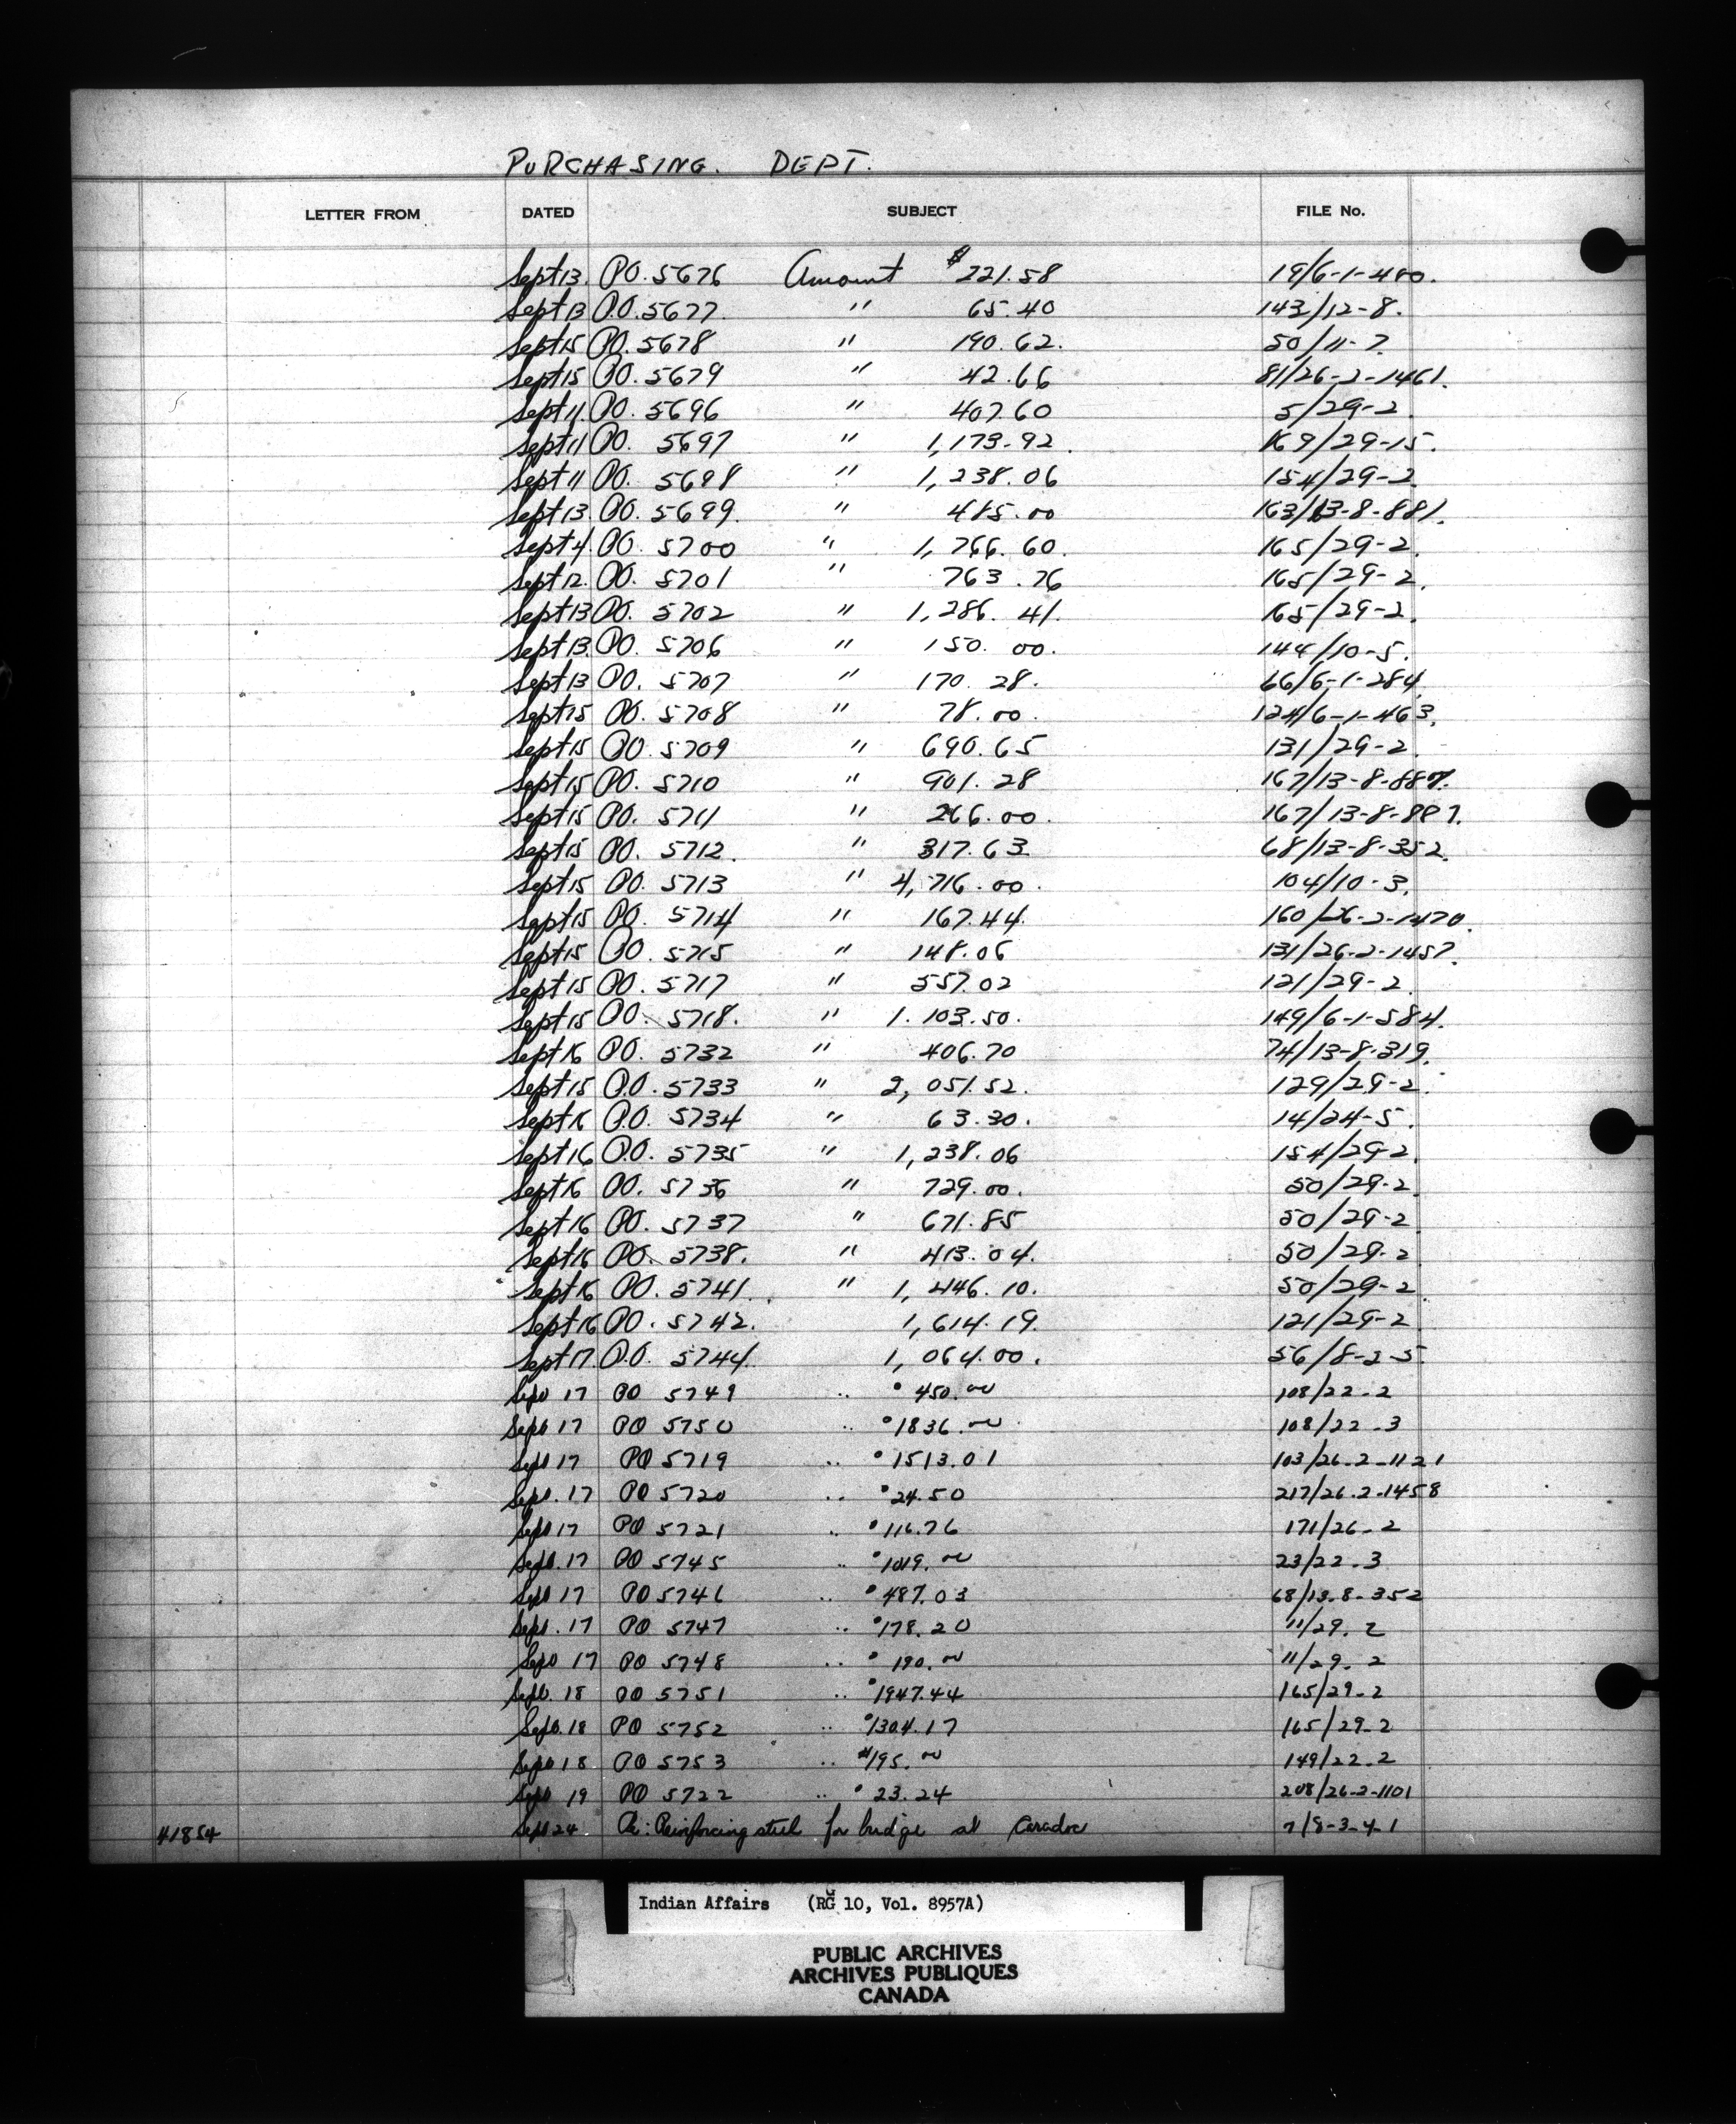 PURCHASING. DEPT.
LETTER FROM DATED SUBJECT FILE No.
Sept 13. P.O. 5676 Amount $221.58 19/6-1-480.
Sept 13 P.O. 5677. " 65.40 143/12-8.
Sept 15 P.O. 5678 " 190.62. 50/11-7.
Sept 15 P.O. 5679 " 42.66 81/26-2-1461.
Sept 11. P.O. 5696 " 407.60 5/29-2.
Sept 11 P.O. 5697 " 1,173.92. 169/29-15.
Sept 11 P.O. 5698 " 1,238.06 154/29-2.
Sept 13. P.O. 5699. " 485.00 163/13-8-881.
Sept 4. P.O. 5700 " 1,766.60. 165/29-2.
Sept 12. P.O. 5701 " 763.76 165/29-2.
Sept 13 P.O. 5702 " 1,286.41. 165/29-2.
Sept 13. P.O. 5706 " 150.00. 144/10-5.
Sept 13 P.O. 5707 " 170.28. 66/6-1-284.
Sept 15 P.O. 5708 " 78.00. 124/6-1-463.
Sept 15 P.O. 5709 " 690.65 131/29-2.
Sept 15 P.O. 5710 " 901.28 167/13-8-887.
Sept 15 P.O. 5711 " 266.00. 167/13-8-887.
Sept 15 P.O. 5712. " 317.63 68/13-8-352.
Sept 15 P.O. 5713 " 4,716.00. 104/10-3.
Sept 15 P.O. 5714 " 167.44. 160/26-2-1470.
Sept 15 P.O. 5715 " 148.06 131/26-2-1457.
Sept 15 P.O. 5717 " 557.02 121/29-2.
Sept 15 P.O. 5718. " 1.103.50. 149/6-1-584.
Sept 16 P.O. 5732 " 406.70 74/13-8-319.
Sept 15 P.O. 5733 " 2,051.52. 129/29-2.
Sept 16 P.O. 5734 " 63.30. 14/24-5.
Sept 16 P.O. 5735 " 1,238.06 154/29-2.
Sept 16 P.O. 5736 " 729.00. 50/29-2.
Sept 16 P.O. 5737 " 671.85 50/29-2
Sept 16 P.O. 5738. " 413.04. 50/29-2
Sept 16 P.O. 5741. " 1,446.10. 50/29-2.
Sept 16 P.O. 5742. 1,614.19. 121/29-2.
Sept 17 P.O. 5744. 1,064.00. 56/8-2-5.
Sept 17 PO 5749 " $450.00 108/22-2
Sept 17 PO 5750 " $1836.00 108/22-3
Sept 17 PO 5719 " $1513.01 103/26-2-1121
Sept. 17 PO 5720 " $24.50 217/26-2-1458
Sept 17 PO 5721 " $116.76 171/26-2
Sept. 17 PO 5745 " $1019.00 23/22-3
Sept 17 PO 5746 " $487.03 68/13-8-352
Sept. 17 PO 5747 " $178.20 11/29-2
Sept 17 PO 5748 " $190.00 11/29-2
Sept. 18 PO 5751 " $1947.44 165/29-2
Sept. 18 PO 5752 " $1304.17 165/29-2
Sept 18 PO 5753 " $195.00 149/22-2
Sept 19 PO 5722 " $23.24 208/26-2-1101
41854 Sept 24 Re: Reinforcing steel for bridge at Caradoc 7/8-3-4-1
Indian Affairs (RG 10, Vol. 8957A)
PUBLIC ARCHIVES
ARCHIVES PUBLIQUES
CANADA